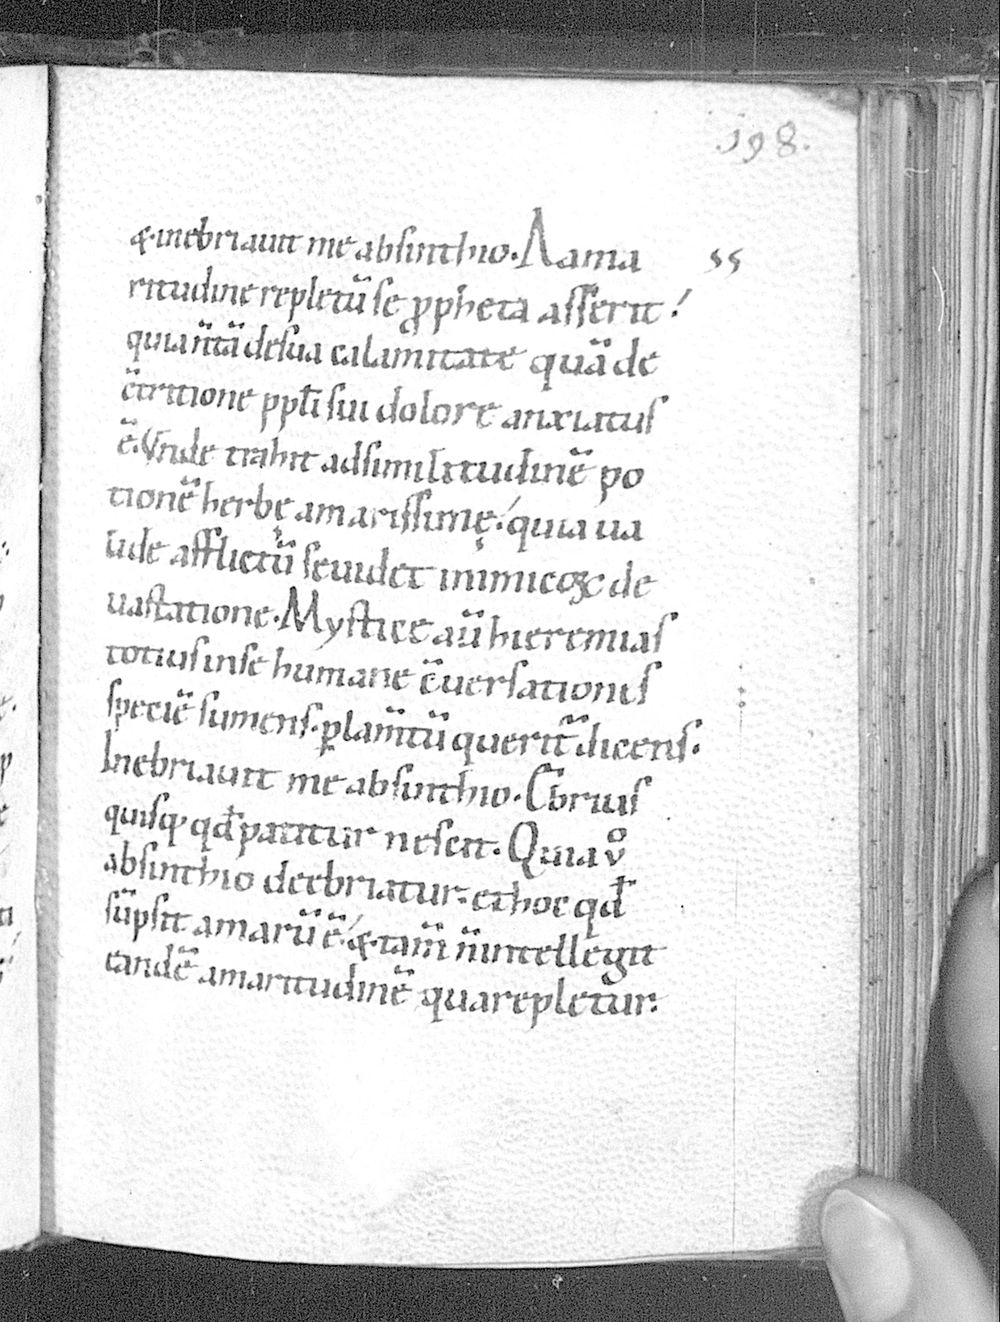 198.
&·inebriauit me absinthio. A ama ss
ritudine repletū se ꝓpheta asserit!
quia n̄ tā de sua calamitate quā de
c̄tritione ppl̄i sui dolore anxiatus
ē. Vnde trahit ad similitudinē po
tionē herbę amarissimę! quia ua
lide afflictū se uidet inimicoꝝ de
uastatione. Mystice aū hieremias
totius in se humane c̄uersationis
speciē sumens. planctū querit̄ dicens.
Inebriauit me absinthio. Ebrius
quisq; qd̄ patitur nescit. Quia ů
absinthio deebriatur. et hoc qd̄
sūpsit amarū ē! &·tam̄ n̄ intellegit
eandē amaritudinē qua repletur.